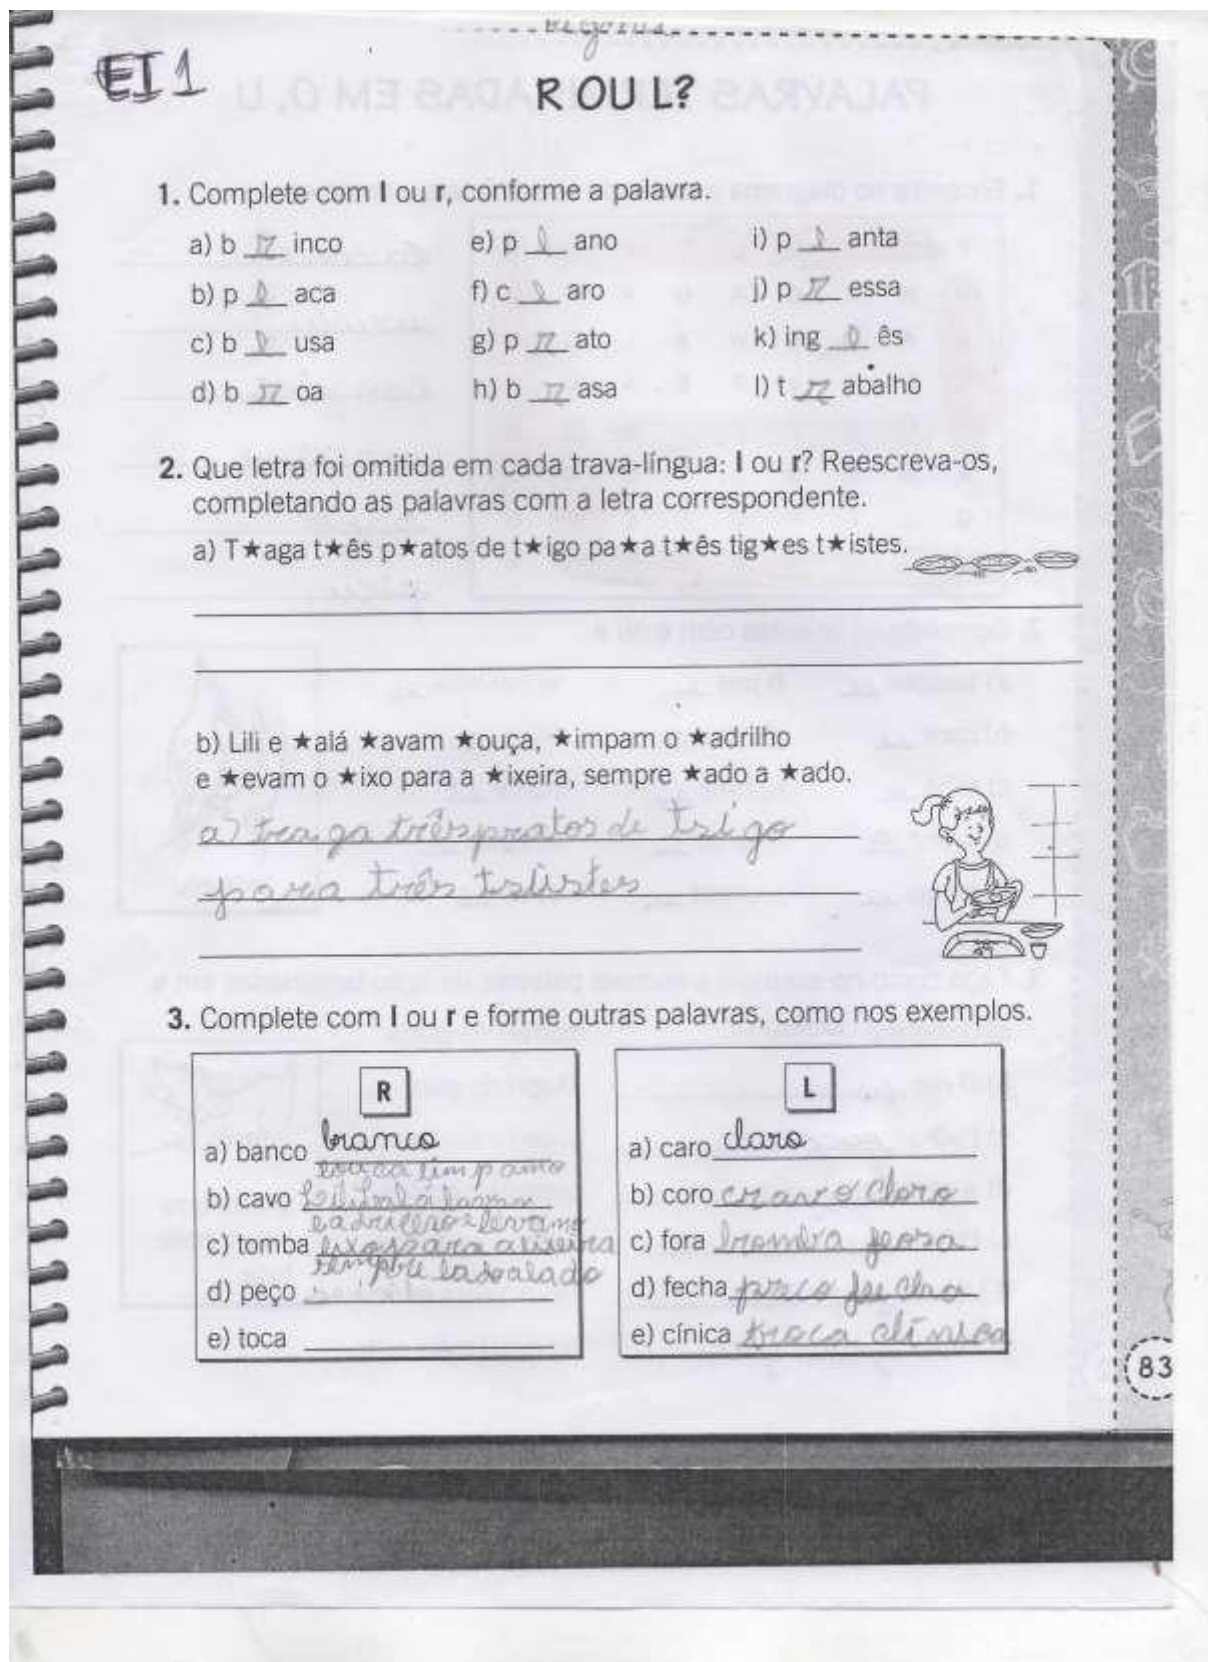 EI 1
R OU L?
1. Complete com l ou r, conforme a palavra.
a) b r inco e) p l ano i) p l anta
b) p l aca f) c l aro j) p r essa
c) b l usa g) p r ato k) ing l ês
d) b r oa h) b r asa l) t r abalho
2. Que letra foi omitida em cada trava-língua: l ou r? Reescreva-os,
completando as palavras com a letra correspondente.
a) T★aga t★ês p★atos de t★igo pa★a t★ês tig★es t★istes.
b) Lili e ★alá ★avam ★ouça, ★impam o ★adrilho
e ★evam o ★ixo para a ★ixeira, sempre ★ado a ★ado.
a) traga três pratos de trigo
para três
3. Complete com l ou r e forme outras palavras, como nos exemplos.
R
a) banco branco
louça limpamo
b) cavo
c) tomba
sempre ladoalado
d) peço
e) toca
L
a) caro claro
b) coro cravo cloro
c) fora
d) fecha
e) cínica troca clínica
83